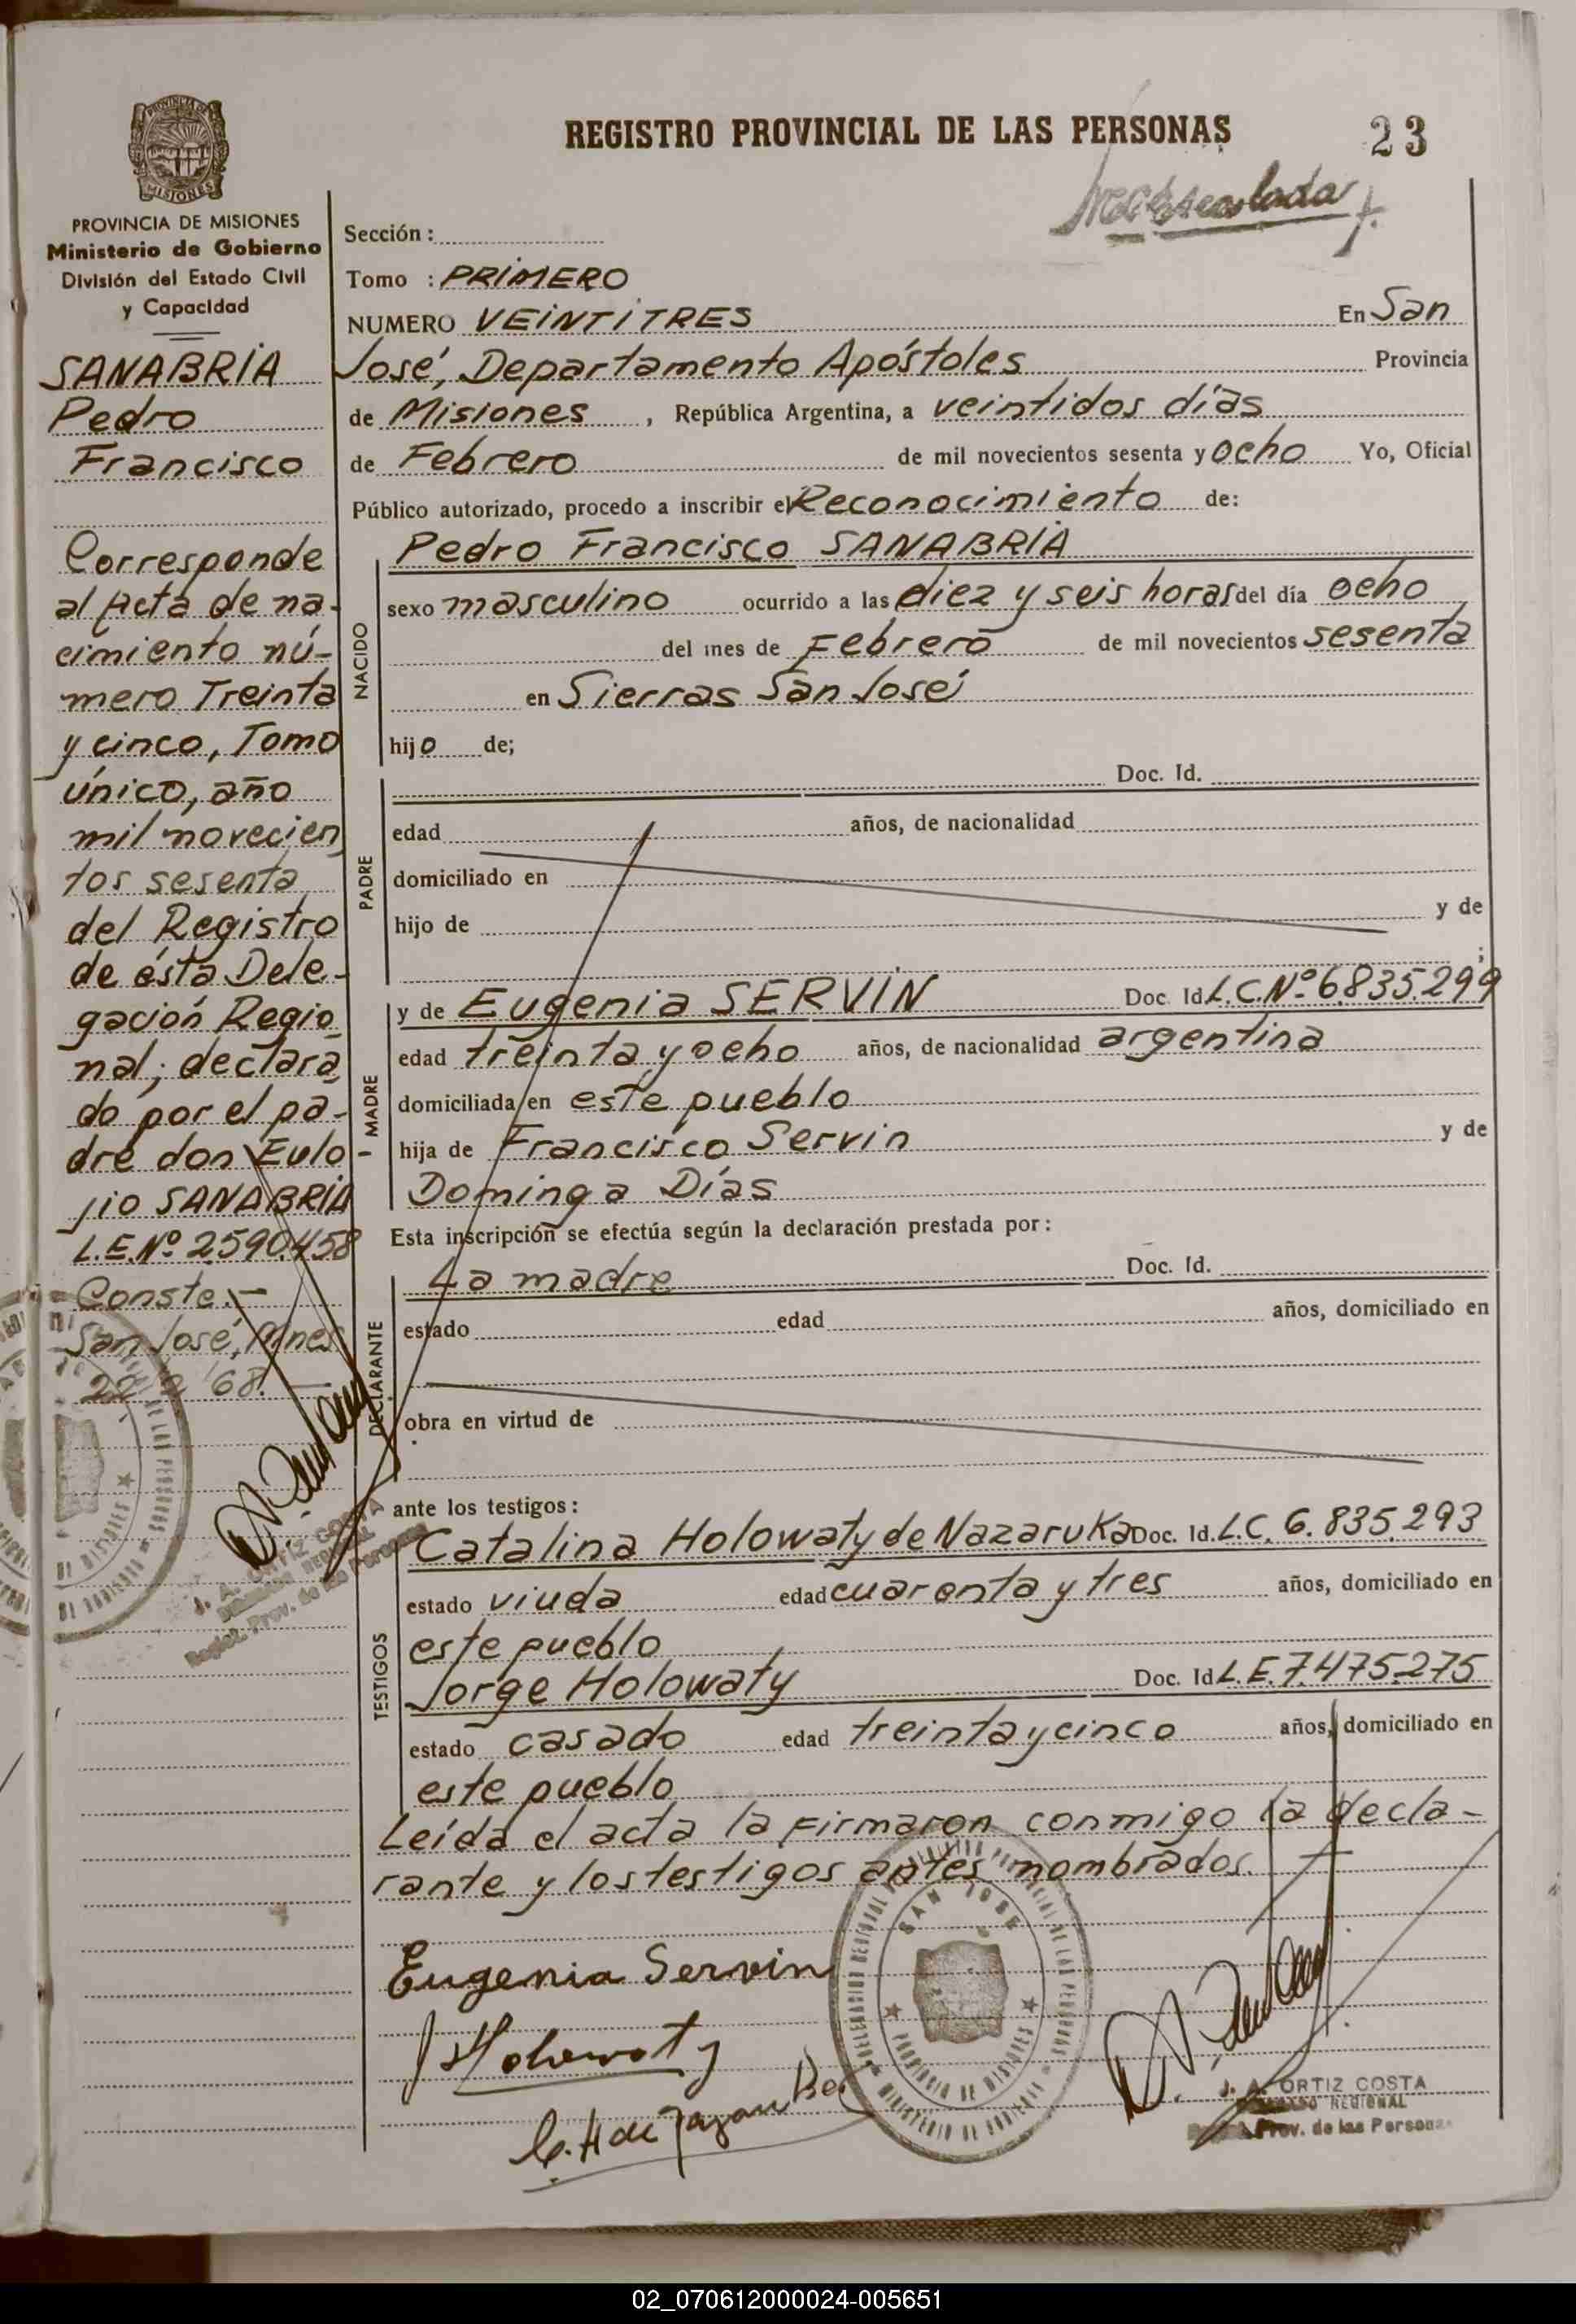 REGISTRO PROVINCIAL DE LAS PERSONAS
23
PROVINCIA DE MISIONES
Ministerio de Gobierno
División del Estado Civil
y Capacidad
SANABRIA
Pedro
Francisco
Corresponde
al Acta de na-
cimiento nú-
mero Treinta
y cinco, Tomo
único, año
mil novecien
tos sesenta
del Registro
de ésta Dele-
gación Regio
nal; declara
do por el pa-
dre don Eulo-
jio SANABRIA
L.E.Nº 2.590.458
Conste.-
San José, Mnes
22/2/68.-
Sección :
Tomo : PRIMERO
NUMERO VEINTITRES En San
José, Departamento Apóstoles Provincia
de Misiones , República Argentina, a veintidos días
de Febrero de mil novecientos sesenta y ocho Yo, Oficial
Público autorizado, procedo a inscribir el Reconocimiento de:
NACIDO
Pedro Francisco SANABRIA
sexo masculino ocurrido a las diez y seis horas del día ocho
del mes de Febrero de mil novecientos sesenta
en Sierras San José
hijo de;
PADRE
Doc. Id.
edad años, de nacionalidad
domiciliado en
hijo de y de
;
MADRE
y de Eugenia SERVIN Doc Id L.C.Nº 6.835.299
edad treinta y ocho años, de nacionalidad argentina
domiciliada en este pueblo
hija de Francisco Servin y de
Dominga Días
Esta inscripción se efectúa según la declaración prestada por :
DECLARANTE
La madre Doc. Id.
estado edad años, domiciliado en
obra en virtud de
ante los testigos :
TESTIGOS
Catalina Holowaty de Nazaruka Doc. Id. L.C. 6.835.293
estado viuda edad cuarenta y tres años, domiciliado en
este pueblo
Jorge Holowaty Doc. Id L.E.7.475.275
estado casado edad treinta y cinco años, domiciliado en
este pueblo
Leída el acta la firmaron conmigo la decla-
rante y los testigos antes nombrados.
Eugenia Servin
J Holowaty
C. H de
SAN JOSE
PROVINCIA DE MISIONES
J. A. ORTIZ COSTA
REGIONAL
Prov. de las Personas
J. A. ORTIZ COSTA
Regist. Prov. de las Personas
02_070612000024-005651